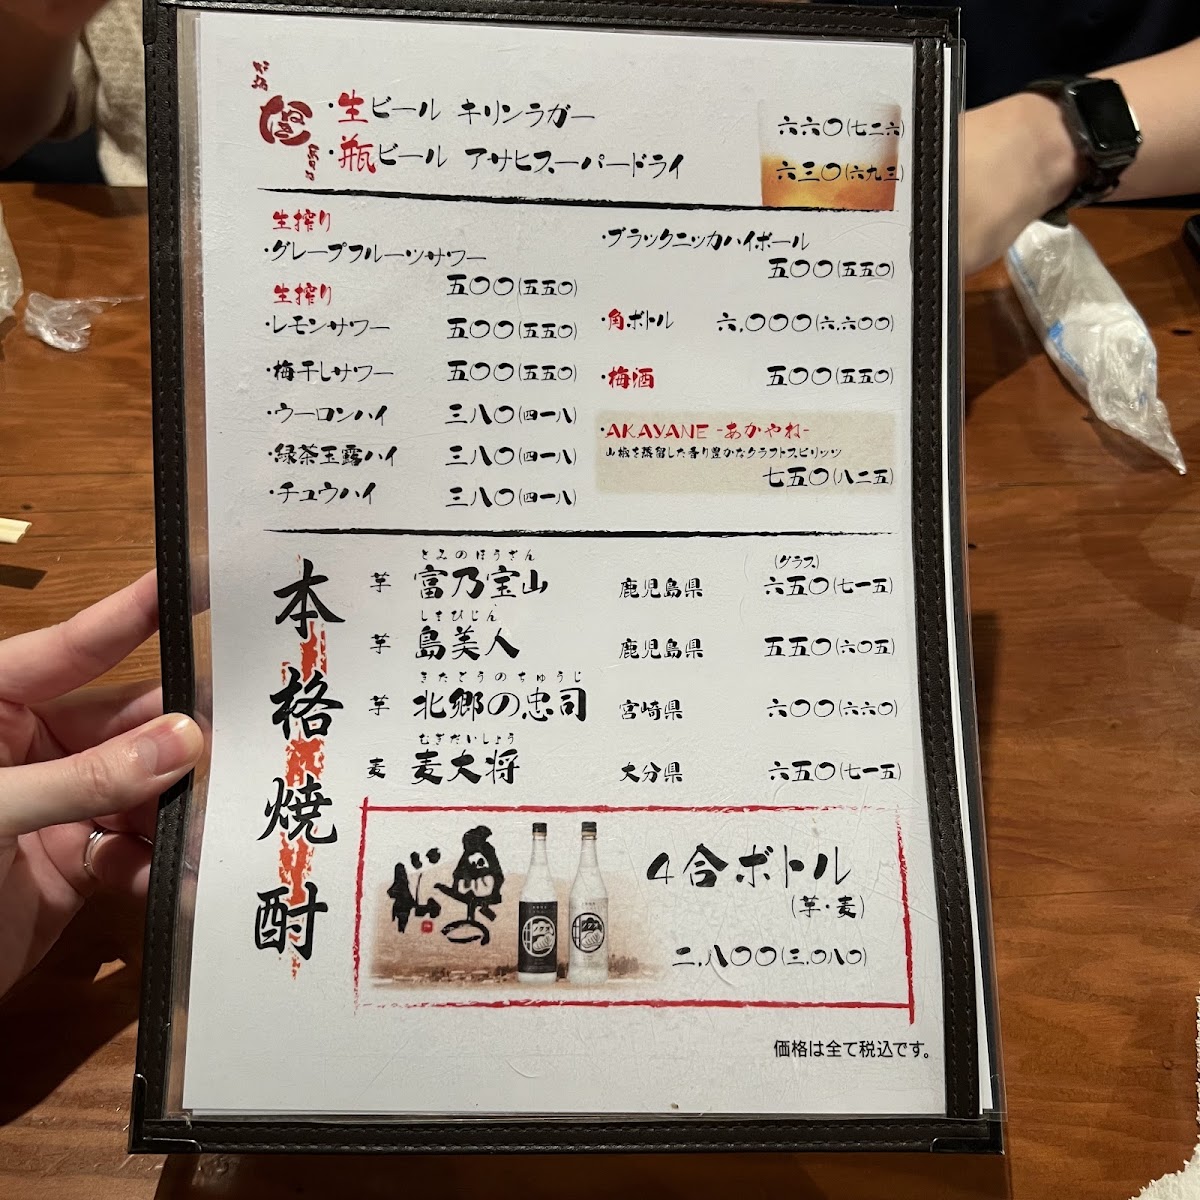 ・生ビール キリンラガー 六六〇(七二六)
・瓶ビール アサヒスーパードライ 六三〇(六九三)
生搾り
・グレープフルーツサワー
五〇〇(五五〇)
生搾り
・レモンサワー 五〇〇(五五〇)
・梅干しサワー 五〇〇(五五〇)
・ウーロンハイ 三八〇(四一八)
・緑茶玉露ハイ 三八〇(四一八)
・チュウハイ 三八〇(四一八)
・ブラックニッカハイボール
五〇〇(五五〇)
・角ボトル 六,〇〇〇(六,六〇〇)
・梅酒 五〇〇(五五〇)
・AKAYANE -あかやね-
山椒を蒸留した香り豊かなクラフトスピリッツ
七五〇(八二五)
本格焼酎
(グラス)
とみのほうざん
芋 富乃宝山 鹿児島県 六五〇(七一五)
しまびじん
芋 島美人 鹿児島県 五五〇(六〇五)
きたごうのちゅうじ
芋 北郷の忠司 宮崎県 六〇〇(六六〇)
むぎだいしょう
麦 麦大将 大分県 六五〇(七一五)
4合ボトル
(芋・麦)
二,八〇〇(三,〇八〇)
価格は全て税込です。